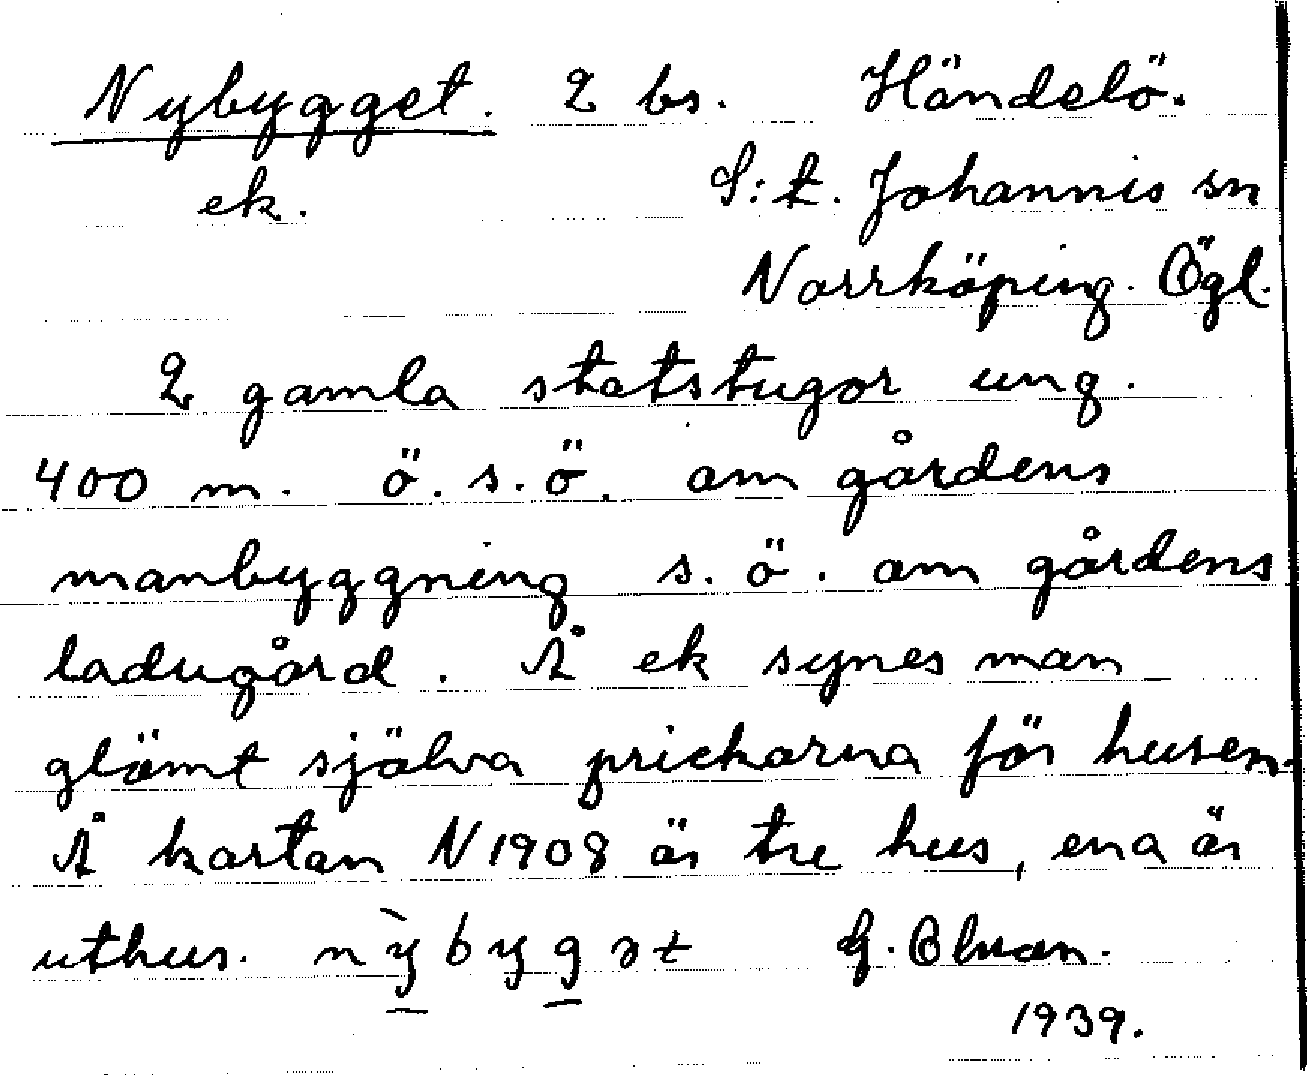 Nybygget. 2 bs. Händelö.
ek. S:t. Johannis sn
Norrköping. Ögl.
2 gamla statstugor ung.
400 m. ö. s. ö. om gårdens
manbyggning s. ö. om gårdens
ladugård. Å ek synes man
glömt själva prickarna för husen.
Å kartan N 1908 är tre hus, ena är
uthus. nỳbygət
1939.